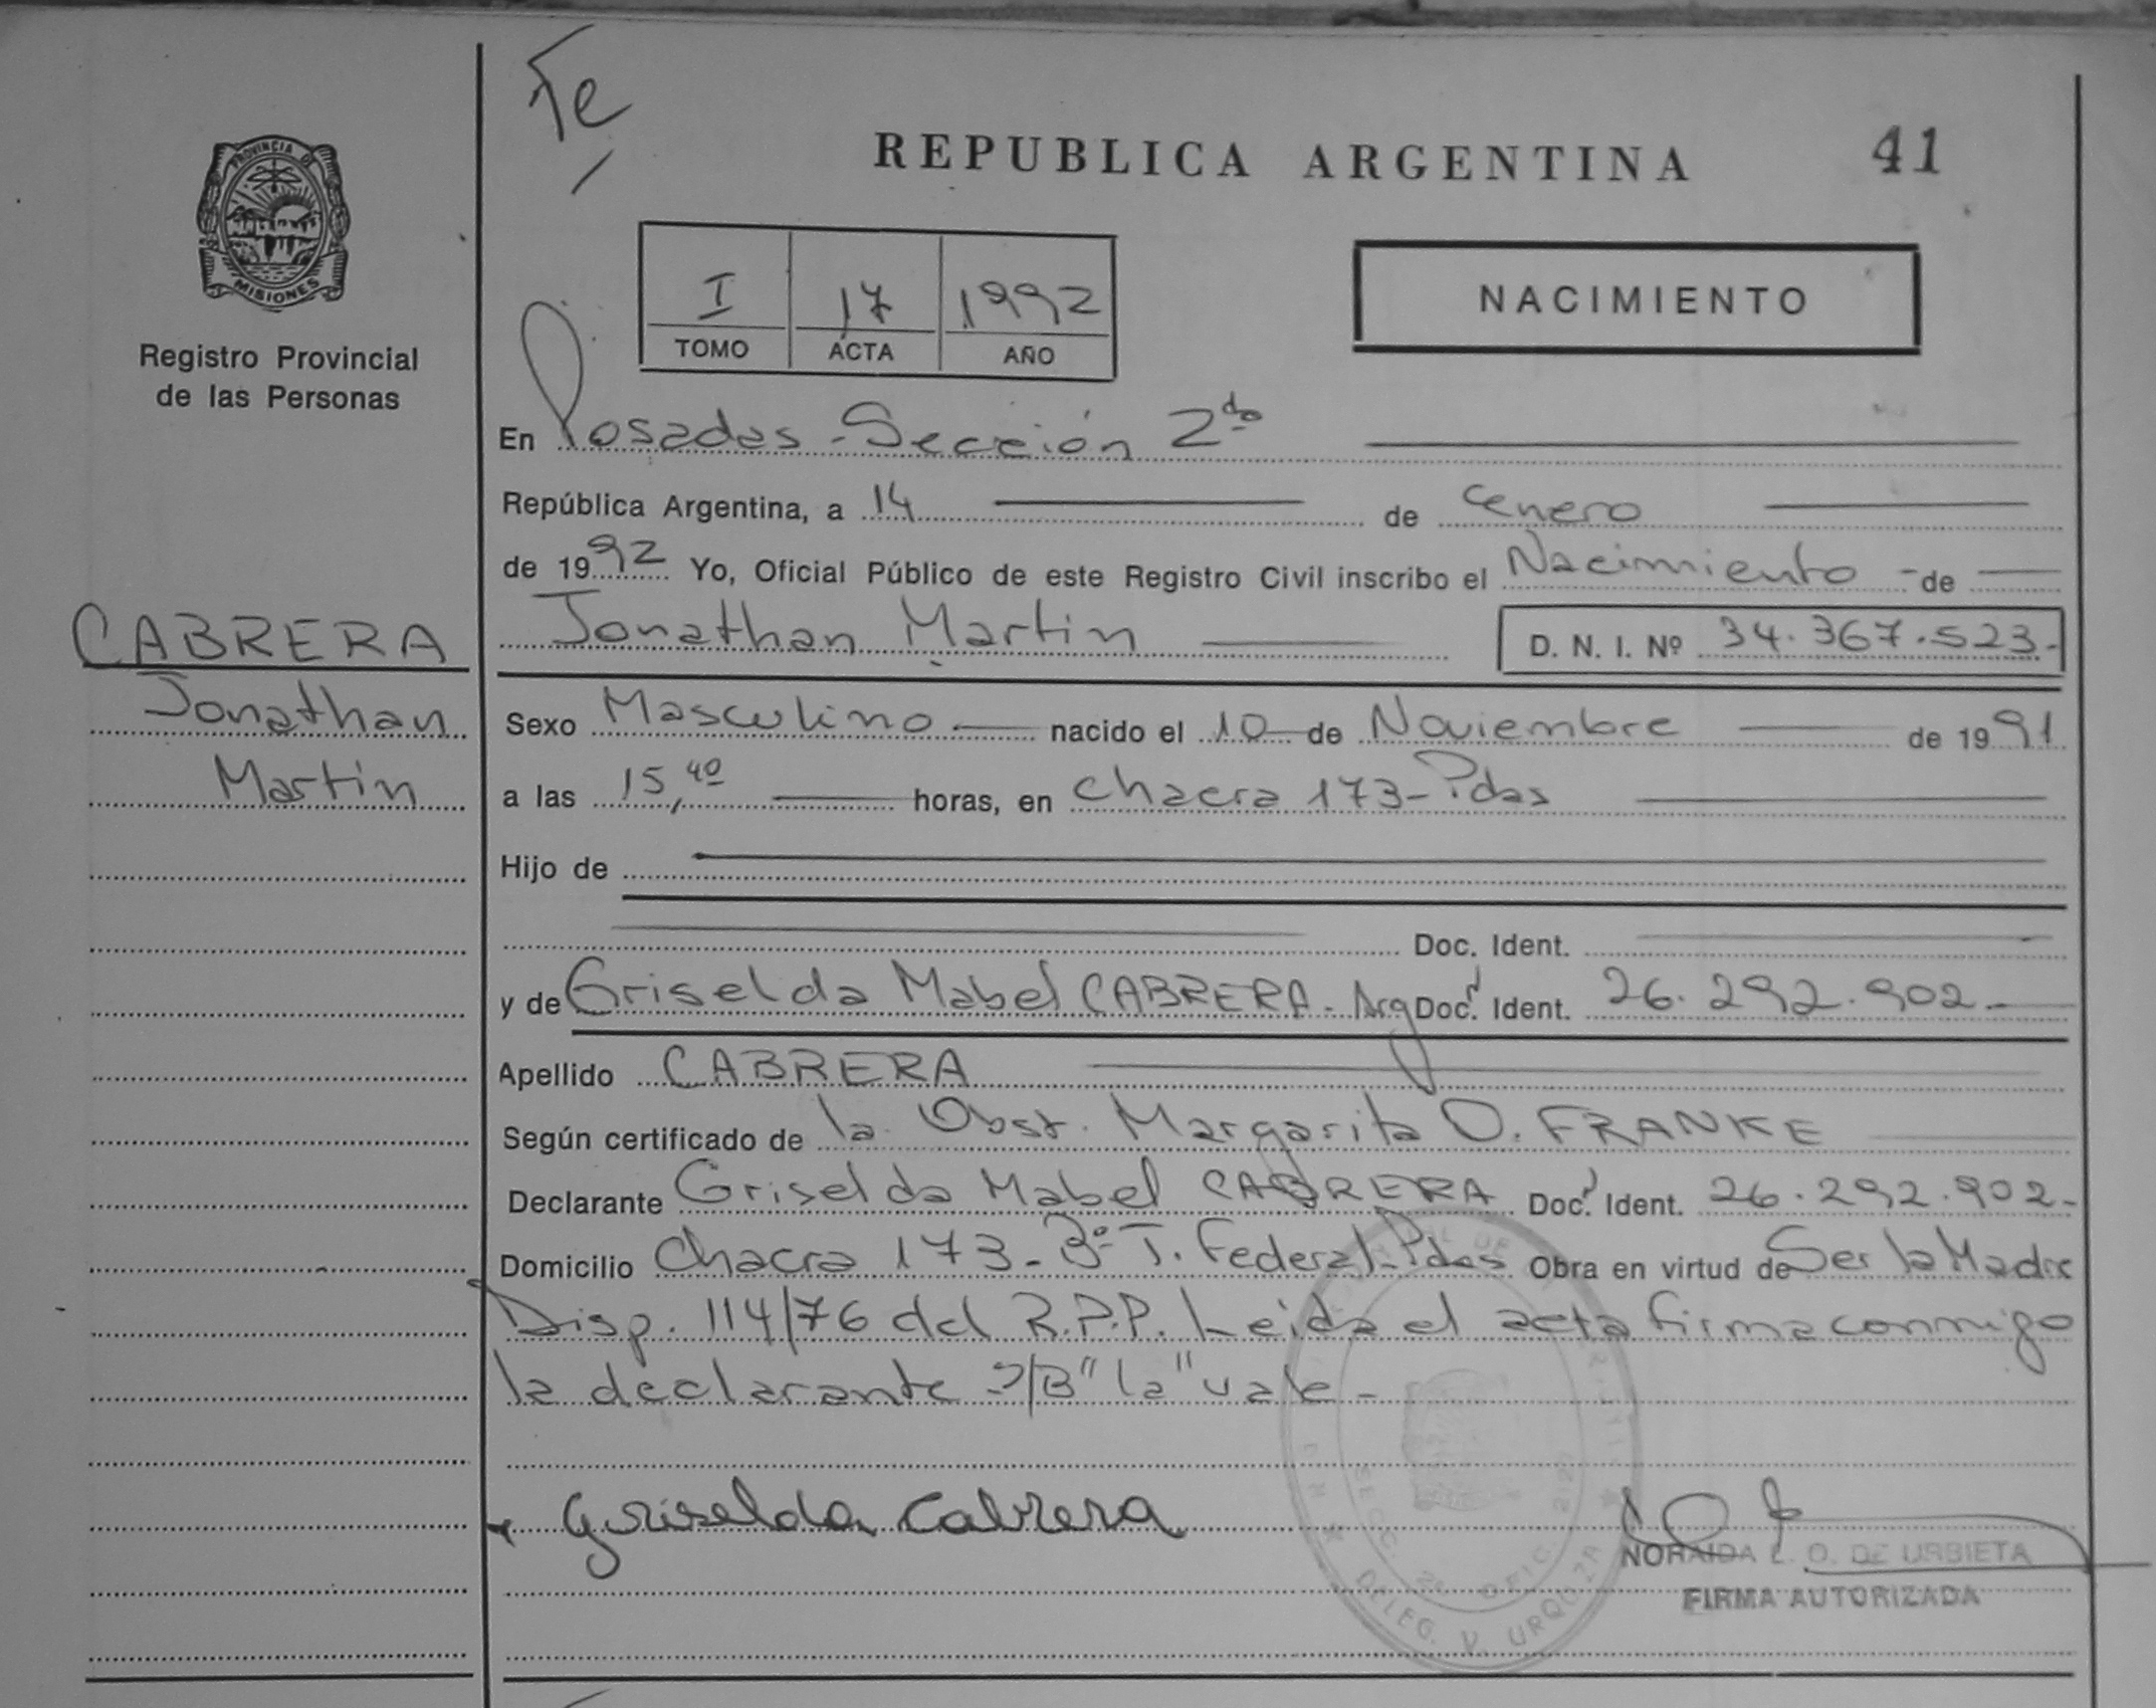 Fe
REPUBLICA ARGENTINA
41
PROVINCIA DE
MISIONES
Registro Provincial
de las Personas
I 17 1992
TOMO ACTA AÑO
NACIMIENTO
En Posadas - Sección 2da
República Argentina, a 14 de enero
de 1992 Yo, Oficial Público de este Registro Civil inscribo el Nacimiento - de
Jonathan Martin D. N. I. Nº 34.367.523.-
CABRERA
Jonathan
Martin
Sexo Masculino nacido el 10 de Noviembre de 1991
a las 15,40 horas, en chacra 173 - Pdas
Hijo de
Doc. Ident.
y de Griselda Mabel CABRERA - Arg Doc. Ident. 26.292.902.-
Apellido CABRERA
Según certificado de la Obst. Margarita O. FRANKE
Declarante Griselda Mabel CABRERA Doc. Ident. 26.292.902-
Domicilio Chacra 173 - Bº T. Federal - Pdas Obra en virtud de Ser la Madre
Disp. 114/76 del R.P.P. Leida el acta firma conmigo
la declarante - S/B "la" vale -
Griselda Cabrera
NORAIDA L. O. DE URBIETA
FIRMA AUTORIZADA
SECC. 2a OFIC.
DELEG. V. URQUIZA